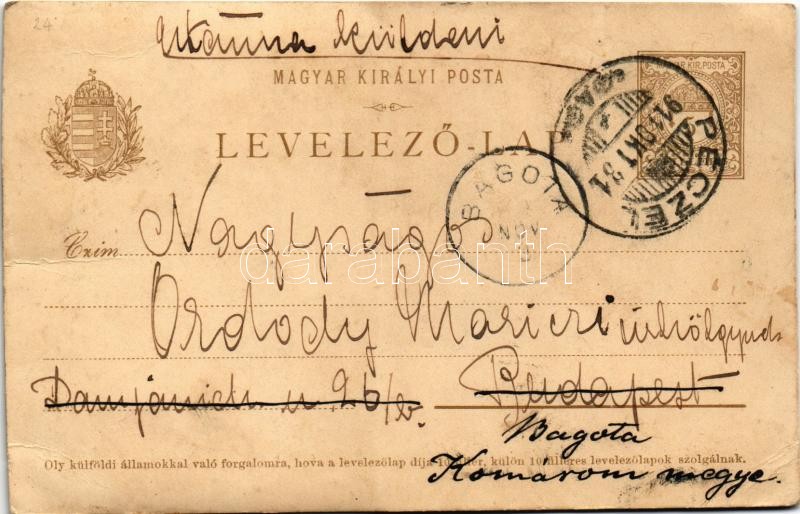 24
Utánna küldeni
MAGYAR KIRÁLYI POSTA
MAGYAR KIR. POSTA
LEVELEZŐ-LAP
PÉCZEL
914 OKT 31
BAGOTA
NOV
Czim
Nagyságos
Ordody Mariczi úrhölgynek
Damjanich u 26/b. Budapest
Bagota
Oly külföldi államokkal való forgalomra, hova a levelezőlap díja 10 fillér, külön 10 filléres levelezőlapok szolgálnak.
Komárom megye.
darabanth